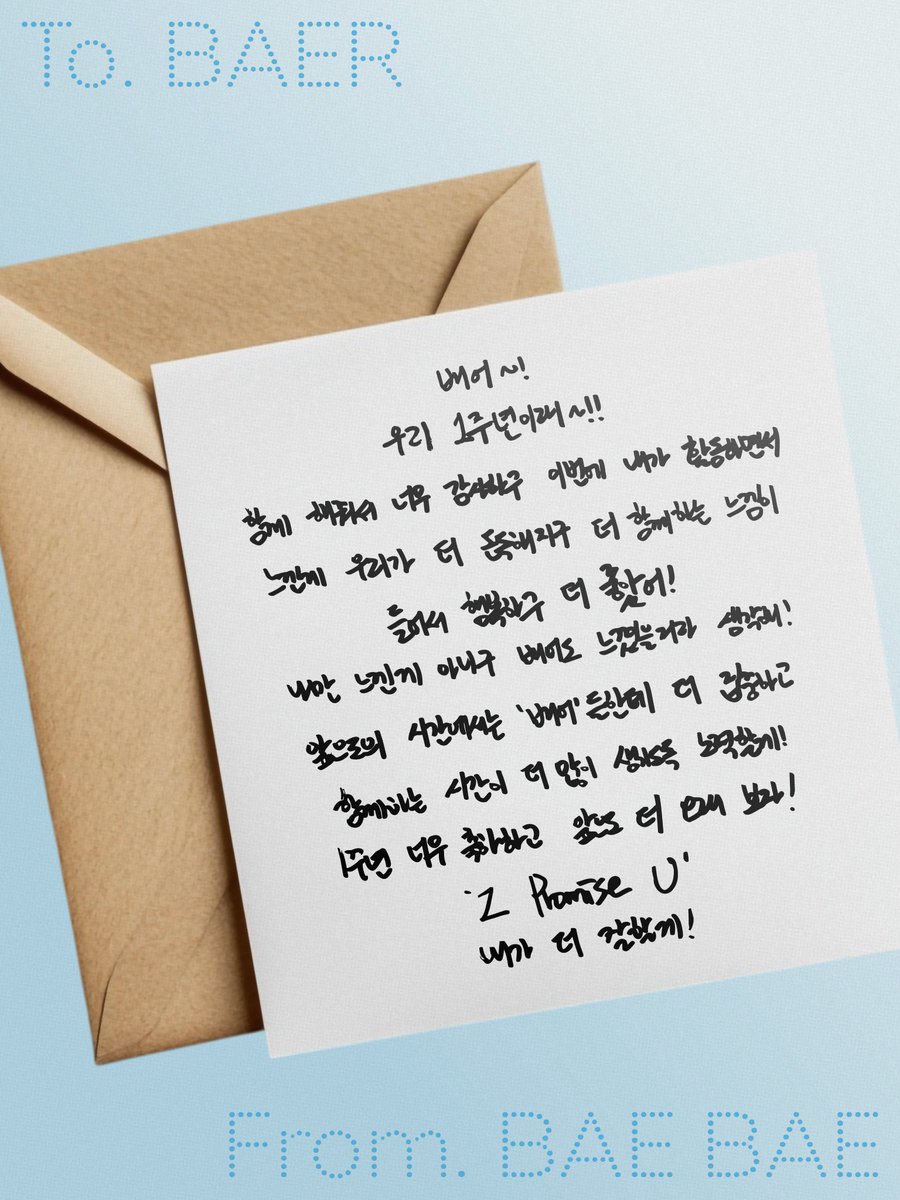 To. BAER
배어~!
우리 1주년이래~!!
함께 해줘서 너무 감사하구 이번에 내가 활동하면서
느낀게 우리가 더 돈독해지구 더 함께하는 느낌이
들어서 행복하구 더 좋았어!
나만 느낀게 아니구 배어도 느꼈을거라 생각해!
앞으로의 시간에서는 '배어'들한테 더 집중하고
함께하는 시간이 더 많이 생기도록 노력할게!
1주년 너무 축하하고 앞으로 더 오래 보자!
'I Promise U'
내가 더 잘할게!
From. BAE BAE